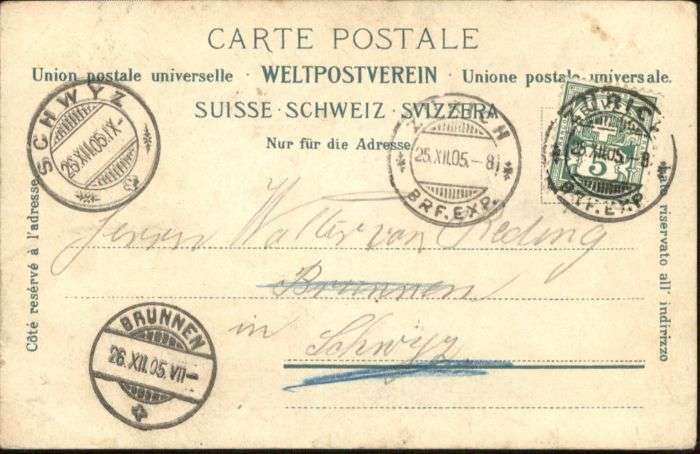 CARTE POSTALE
Union postale universelle · WELTPOSTVEREIN · Unione postale universale.
SUISSE · SCHWEIZ · SVIZZERA
Nur für die Adresse
Côté reservé à l'adresse
SCHWYZ
25.XII.05.IX-
ZÜRICH
25.XII.05.-8
BRF.EXP.
ZÜRICH
25.XII.05.-8
BRF.EXP.
5
Lato riservato all' indirizzo
Herrn Walter von Reding
Brunnen
in Schwyz
BRUNNEN
26.XII.05.VII-